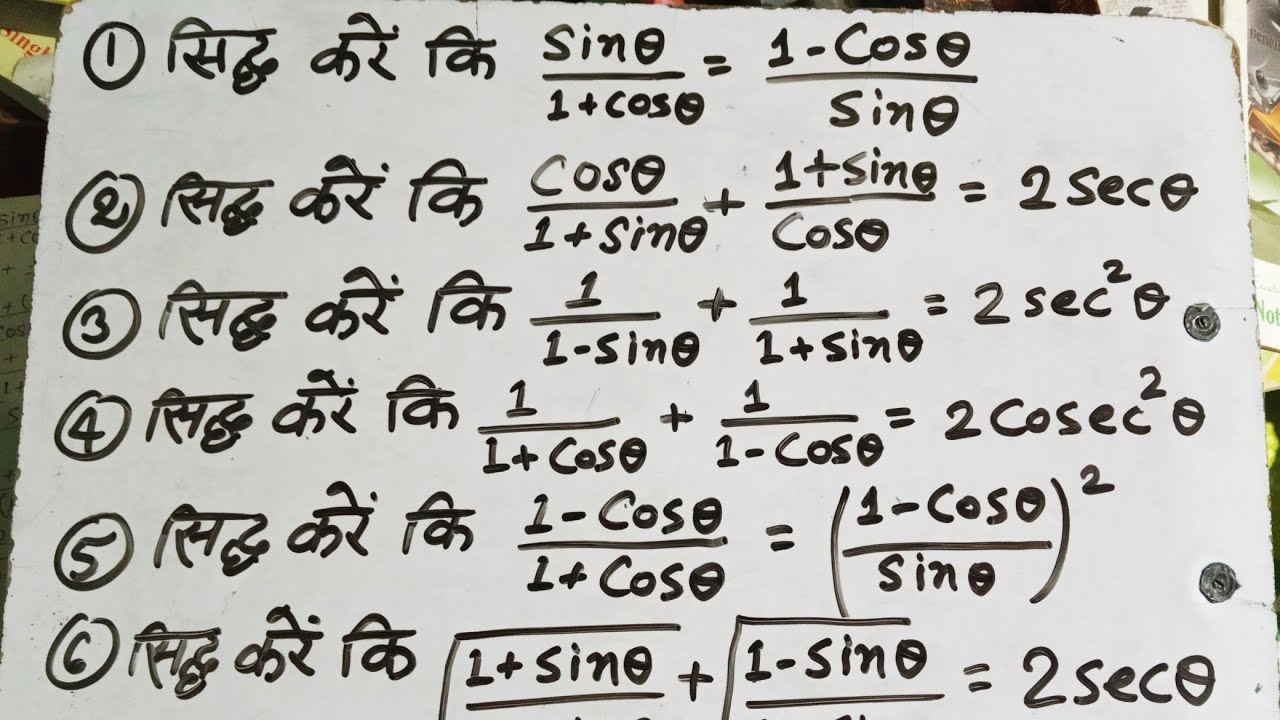 ① सिद्ध करें कि sinθ/1+cosθ = 1-Cosθ/Sinθ
② सिद्ध करें कि Cosθ/1+sinθ + 1+sinθ/Cosθ = 2secθ
③ सिद्ध करें कि 1/1-sinθ + 1/1+sinθ = 2sec²θ
④ सिद्ध करें कि 1/1+Cosθ + 1/1-Cosθ = 2Cosec²θ
⑤ सिद्ध करें कि 1-Cosθ/1+Cosθ = (1-Cosθ/sinθ)²
⑥ सिद्ध करें कि √1+sinθ + √1-sinθ = 2secθ